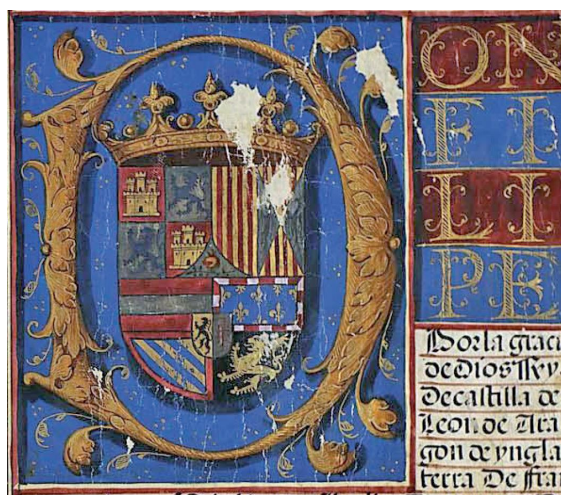 DON
FI
LI
PE
Por la graci
de Dios Rey
De castilla de
Leon. de Ara
gon de yngla
terra De ffra